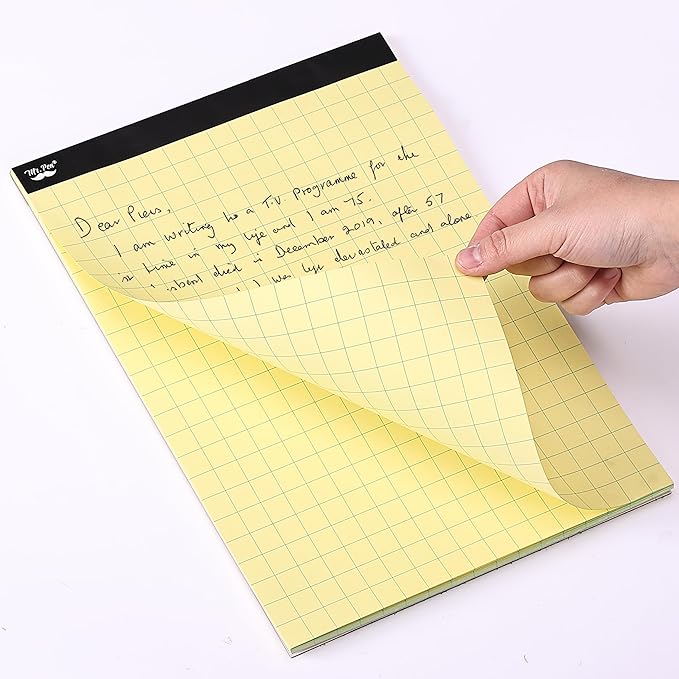 Mr. Pen®
Dear Piers,
I am writing to a T.V. Programme for the
time in my life and I am 75.
died in December 2019, after 57
I was left devastated and alone